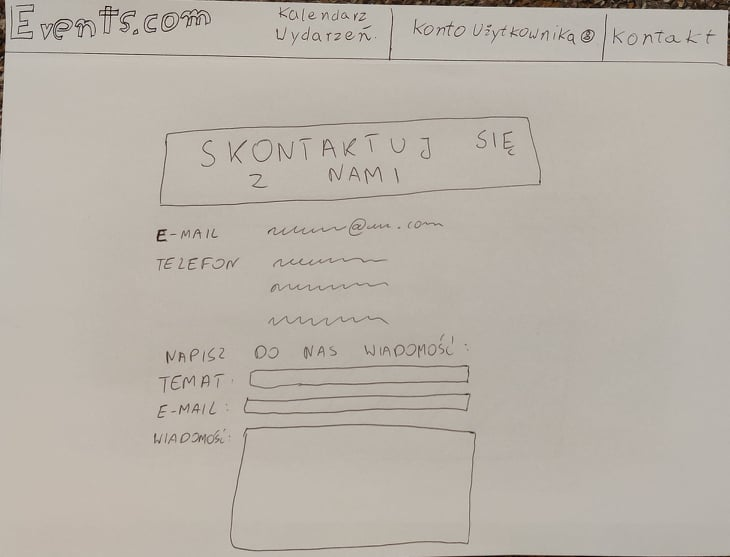 Events.com
Kalendarz
Wydarzeń.
Konto Użytkownika
Kontakt
SKONTAKTUJ SIĘ
Z NAMI
E-MAIL @ .com
TELEFON
NAPISZ DO NAS WIADOMOŚĆ:
TEMAT:
E-MAIL:
WIADOMOŚĆ: